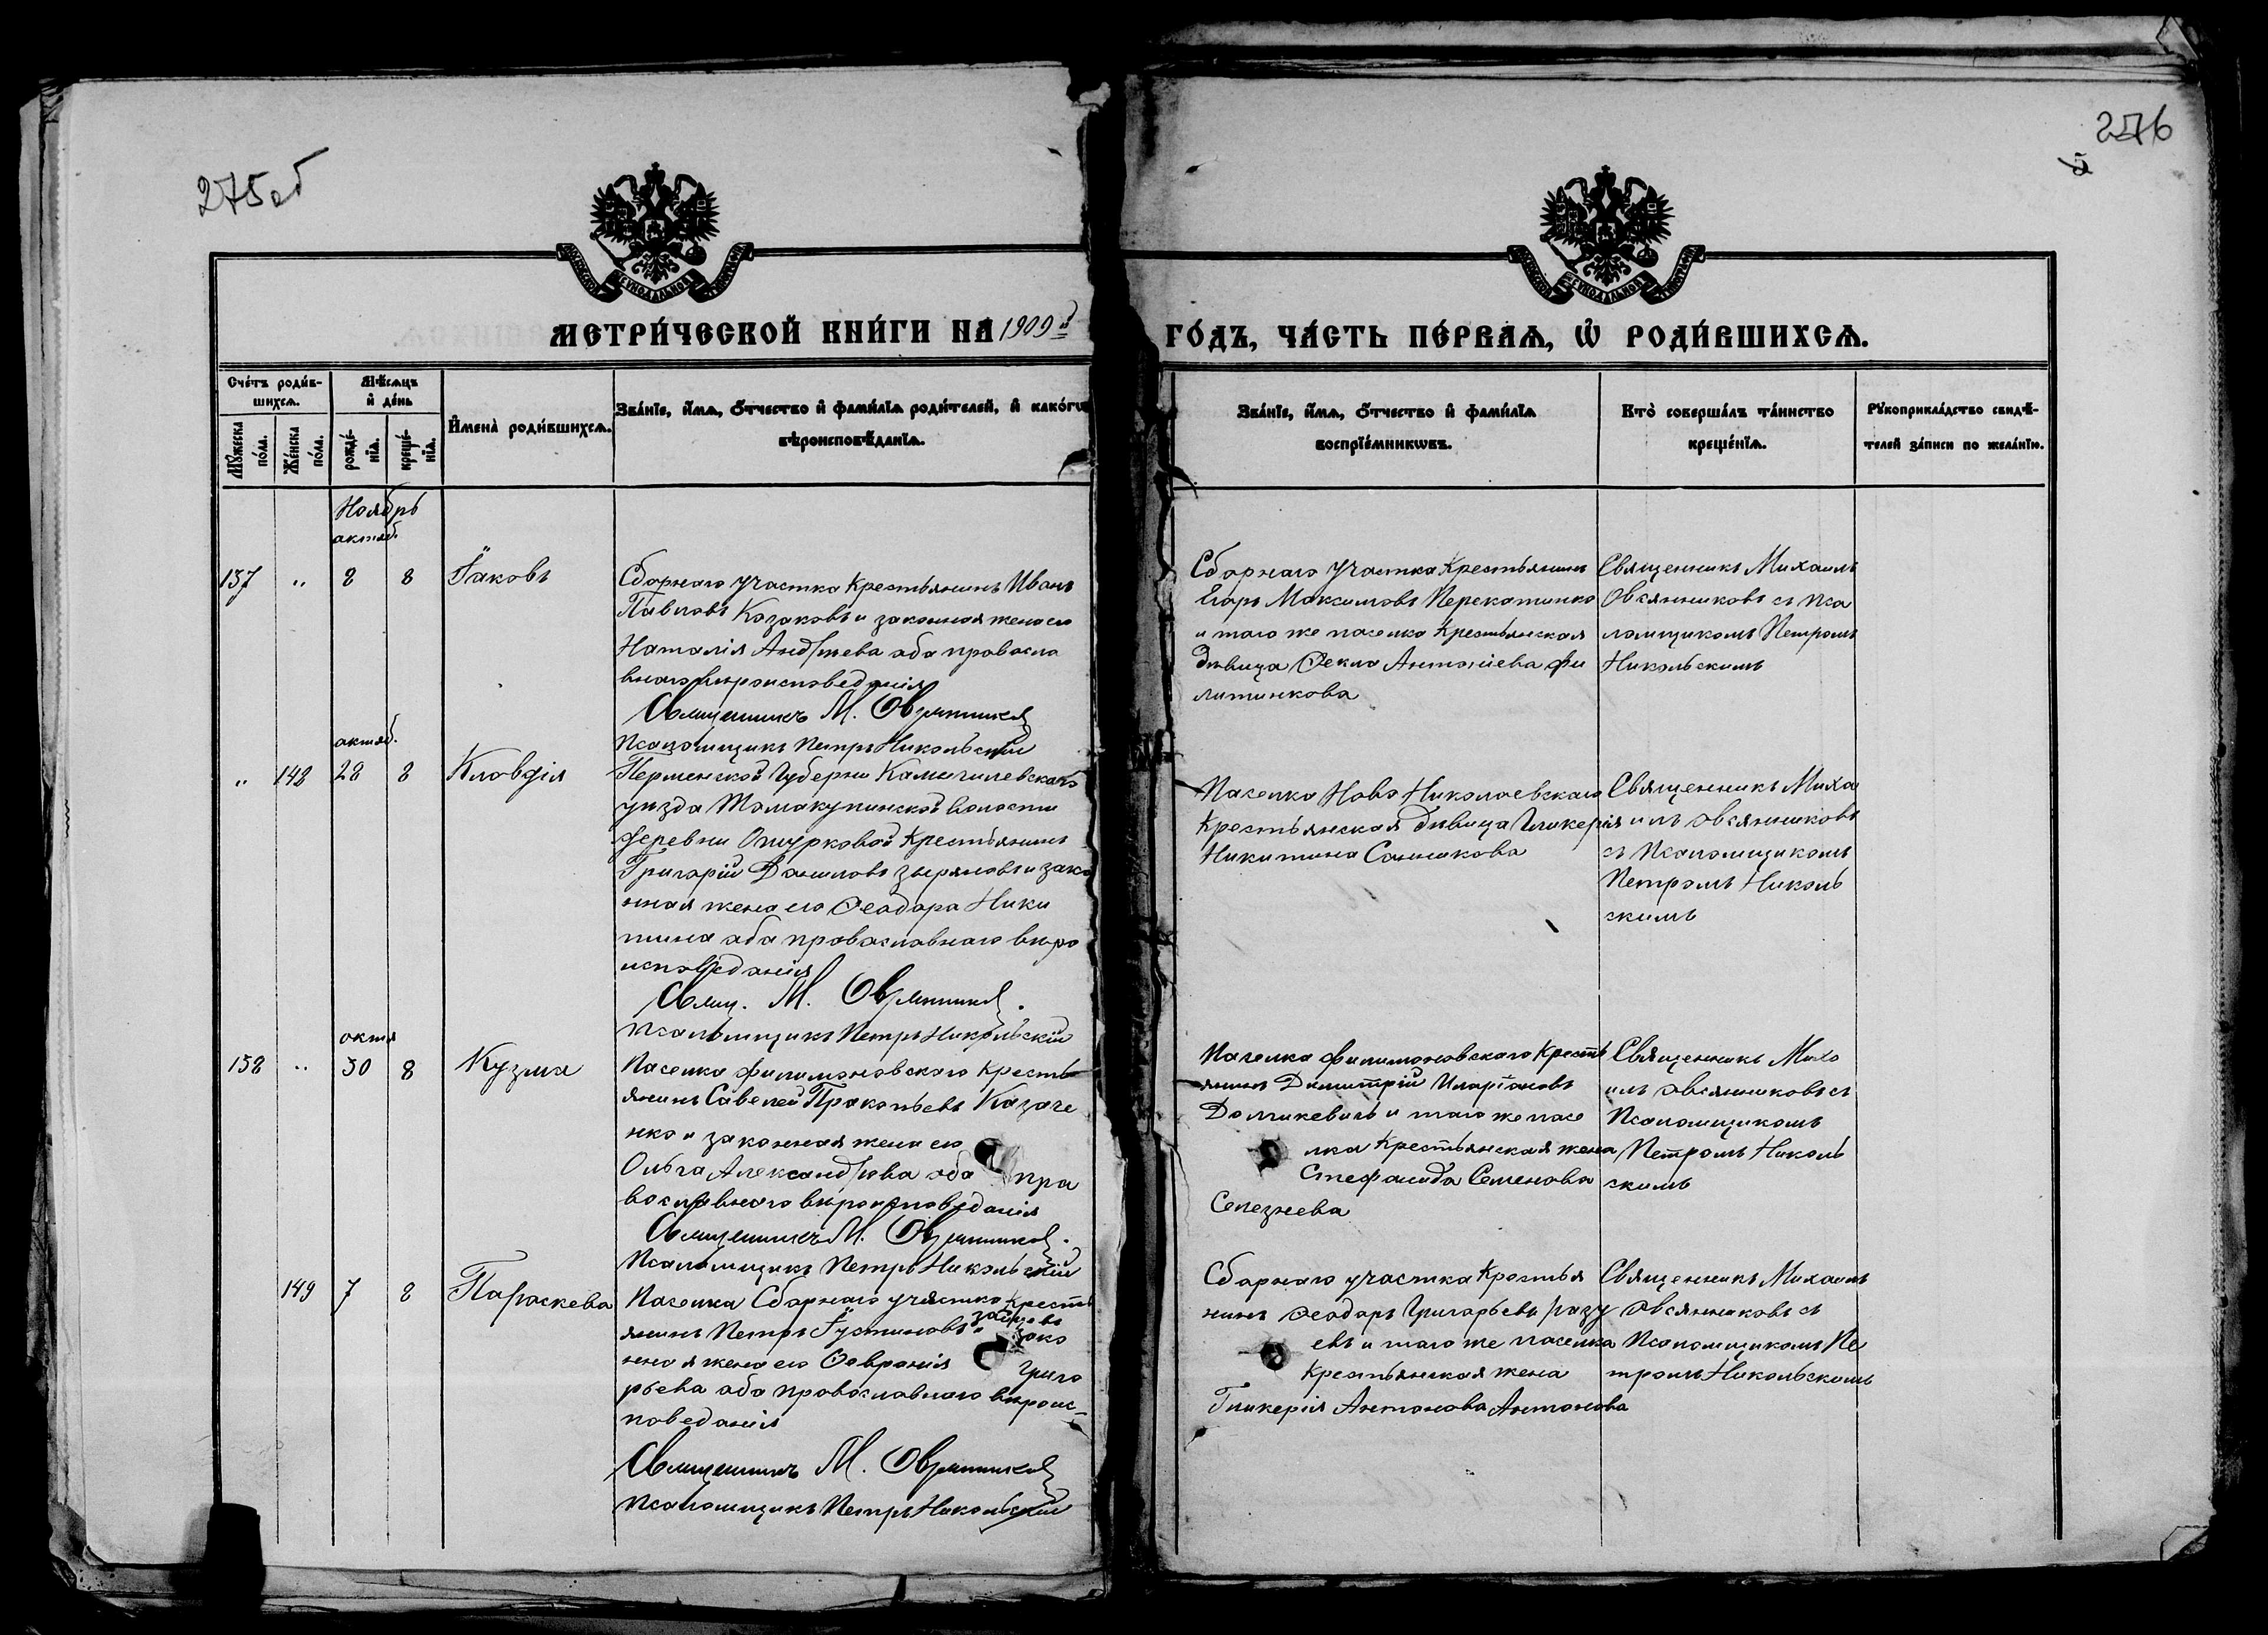 275 об
276
МЕТРИ́ЧЕСКОЙ КНИ́ГИ НА 1909й
ГО́ДЪ, ЧА́СТЬ ПЕ́РВАѦ, Ѡ҆ РОДИ́ВШИХСѦ.
Сче́тъ роди́в-
шихсѧ.
Мѣ́сѧцъ
и҆ де́нь
И҆мена̀ роди́вшихсѧ.
Зва́нїе, и҆́мѧ, ѻ҆́тчество и҆ фами́лїѧ роди́телей, и҆ како́гѡ
вѣроисповѣ́данїѧ.
Мꙋ́жеска
по́ла.
Же́нска
по́ла.
рожде́-
нїѧ.
креще́-
нїѧ.
Зва́нїе, и҆́мѧ, ѻ҆́тчество и҆ фами́лїѧ
воспрїе́мникѡвъ.
Кто̀ соверша́лъ та́инство
креще́нїѧ.
Рꙋкоприкла́дство свидѣ́-
телей за́писи по жела́нїю.
Ноябрь
октяб.
137 „ 8 8 Іаковъ
Сборнаго участка Крестьянинъ Иванъ
Павловъ Козаковъ и законная жена его
Наталія Андреева оба правосла
внаго вероисповеданія
Священникъ М. Овсянниковъ
Псаломщикъ Петръ Никольскій
Сборнаго участка Крестьянинъ
Егоръ Максимовъ Перекатинко
и того же поселка Крестьянская
девица Ѳекла Антонiева Фи
липинкова
Священникъ Михаилъ
Овсянниковъ съ Пса
ломщикомъ Петромъ
Никольскимъ
октяб.
„ 148 28 8 Клавдія
Перменской Губерни Камышлевскаго
уезда Томакулинской волости
деревни Ошурковой Крестьянинъ
Григорій Даниловъ Зыряновъ и зако
нная жена его Ѳеодора Ники
тина оба православнаго веро
исповеданія
Свящ. М. Овсянниковъ.
Псаломщикъ Петръ Никольскій
Поселка Ново Николаевскаго
Крестьянская девица Гликерія
Никитина Санникова
Священникъ Миха
илъ Овсянниковъ
съ Псаломщикомъ
Петромъ Николь
скимъ
октя
138 „ 30 8 Кузма
Поселка Филимоновскаго Кресть
янинъ Савелей Прокопьевъ Казаче
нко и законная жена его
Ольга Александрова оба пра
вославнаго вероисповеданія
Священникъ М. Овсянниковъ.
Псаломщикъ Петръ Никольскій
Поселка Филимоновскаго Кресть
янинъ Димитрій Иларіоновъ
Долмкевичъ и того же посе
лка Крестьянская жена
Стефанида Семенова
Селезнева
Священникъ Миха
илъ Овсянниковъ съ
Псаломщикомъ
Петромъ Николь
скимъ
149 7 8 Параскева
Поселка Сборнаго участка Кресть
янинъ Петръ Іустиновъ
и зако
нная жена его Ѳевронія Григо
рьева оба православнаго вероис-
поведанія
Священникъ М. Овсянниковъ
Псаломщикъ Петръ Никольскій
Сборнаго участка Крестья
нинъ Ѳеодоръ Григорьевъ Разу
евъ и того же поселка
Крестьянская жена
Гликерія Антонова Антонова
Священникъ Михаилъ
Овсянниковъ съ
Псаломщикомъ Пе
тромъ Никольскимъ